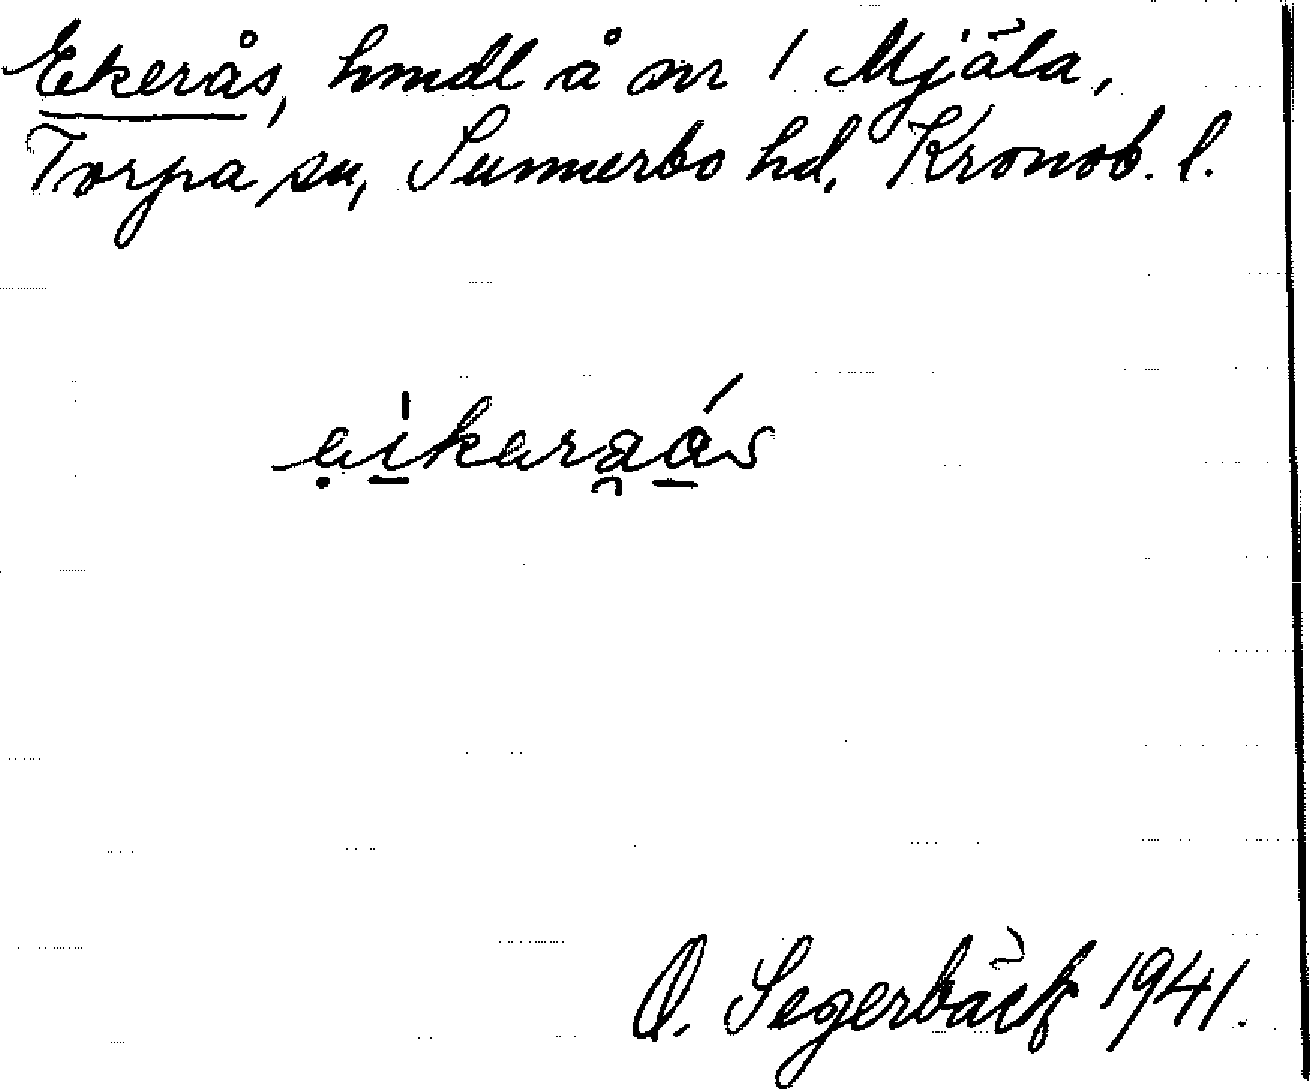 Ekerås, hmdl å nr 1 Mjäla,
Torpa sn, Sunnerbo hd, Kronob. l.
eikeraós
O. Segerbäck 1941.